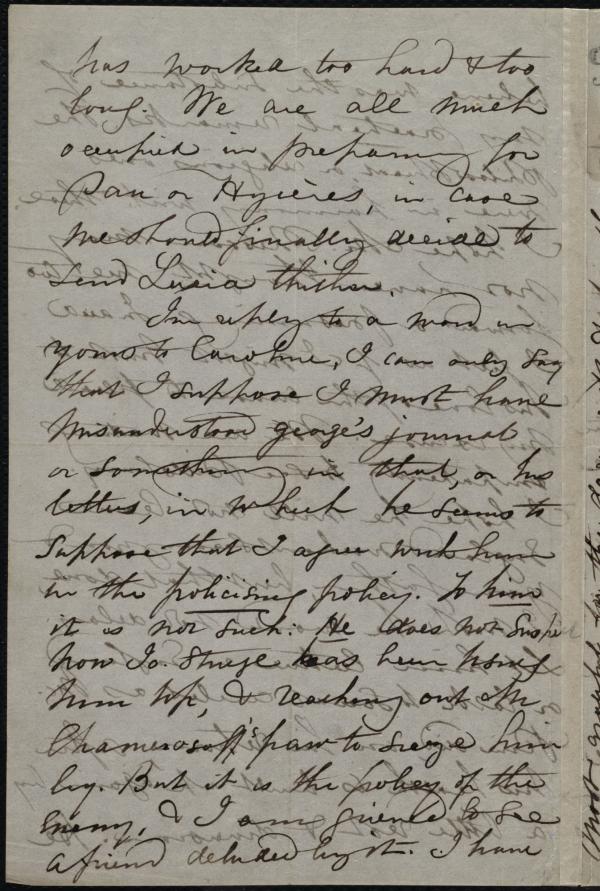 has worked too hard & too
long. We are all much
occupied in preparing for
Pau or Hyières, in case
we should finally decide to
send Lucia thither.
In reply to a word in
yours to Caroline, I can only say
that I suppose I must have
misunderstood george's journal
or something in that, or his
letters, in which he seems to
suppose that I agree with him
in the policising policy. To him
it is not such. He does not suspect
how Jo. Sturge has been using
him up, & reaching out the
Chamerosoff's paw to seize him
by. But it is the policy of the
Enemy, & I am grieved to see
a friend deluded by it. I have